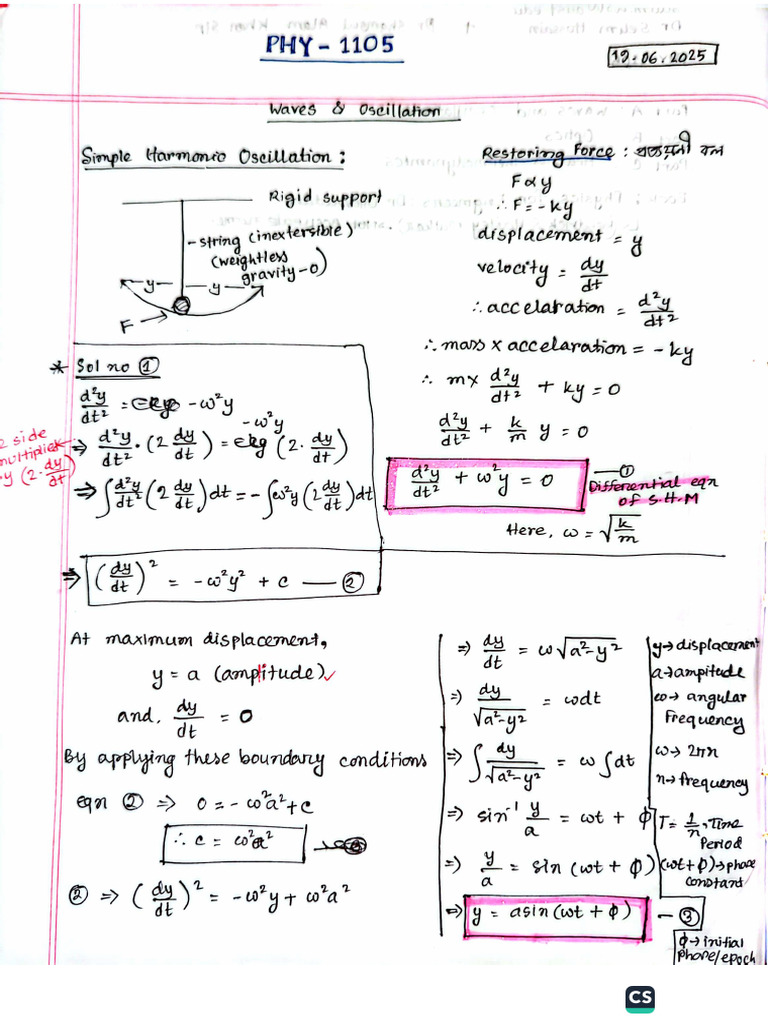 PHY - 1105
19.06.2025
Waves & Oscillation
Simple Harmonic Oscillation :
Rigid support
string (inextersible)
(weightless
gravity-0)
y
y
F
Restoring Force : প্রত্যয়নী বল
F α y
∴ F = -ky
displacement = y
velocity = dy/dt
∴ accelaration = d²y/dt²
∴ mass x accelaration = -ky
∴ m x d²y/dt² + ky = 0
d²y/dt² + k/m y = 0
d²y/dt² + ω²y = 0 — ①
Differential eqn
of S.H.M
Here, ω = √(k/m)
* Sol no ①
d²y/dt² = -ω²y
-ω²y
⇒ d²y/dt² · (2 dy/dt) = (2 · dy/dt)
2 side
multiplied
by (2 · dy/dt)
⇒ ∫ d²y/dt² (2 dy/dt) dt = - ∫ ω²y (2 dy/dt) dt
⇒ (dy/dt)² = -ω²y² + c — ②
At maximum displacement,
y = a (amplitude)
and, dy/dt = 0
By applying these boundary conditions
eqn ② ⇒ 0 = -ω²a² + c
∴ c = ω²a²
② ⇒ (dy/dt)² = -ω²y + ω²a²
⇒ dy/dt = ω√(a²-y²)
⇒ dy/√(a²-y²) = ωdt
⇒ ∫ dy/√(a²-y²) = ω ∫ dt
⇒ sin⁻¹ y/a = ωt + ϕ
⇒ y/a = sin (ωt + ϕ)
⇒ y = asin (ωt + ϕ) — ③
y → displacement
a → ampitude
ω → angular
frequency
ω → 2πn
n → frequency
T = 1/n, Time
Period
(ωt + ϕ) → phase
constant
ϕ → initial
phase/epoch
CS